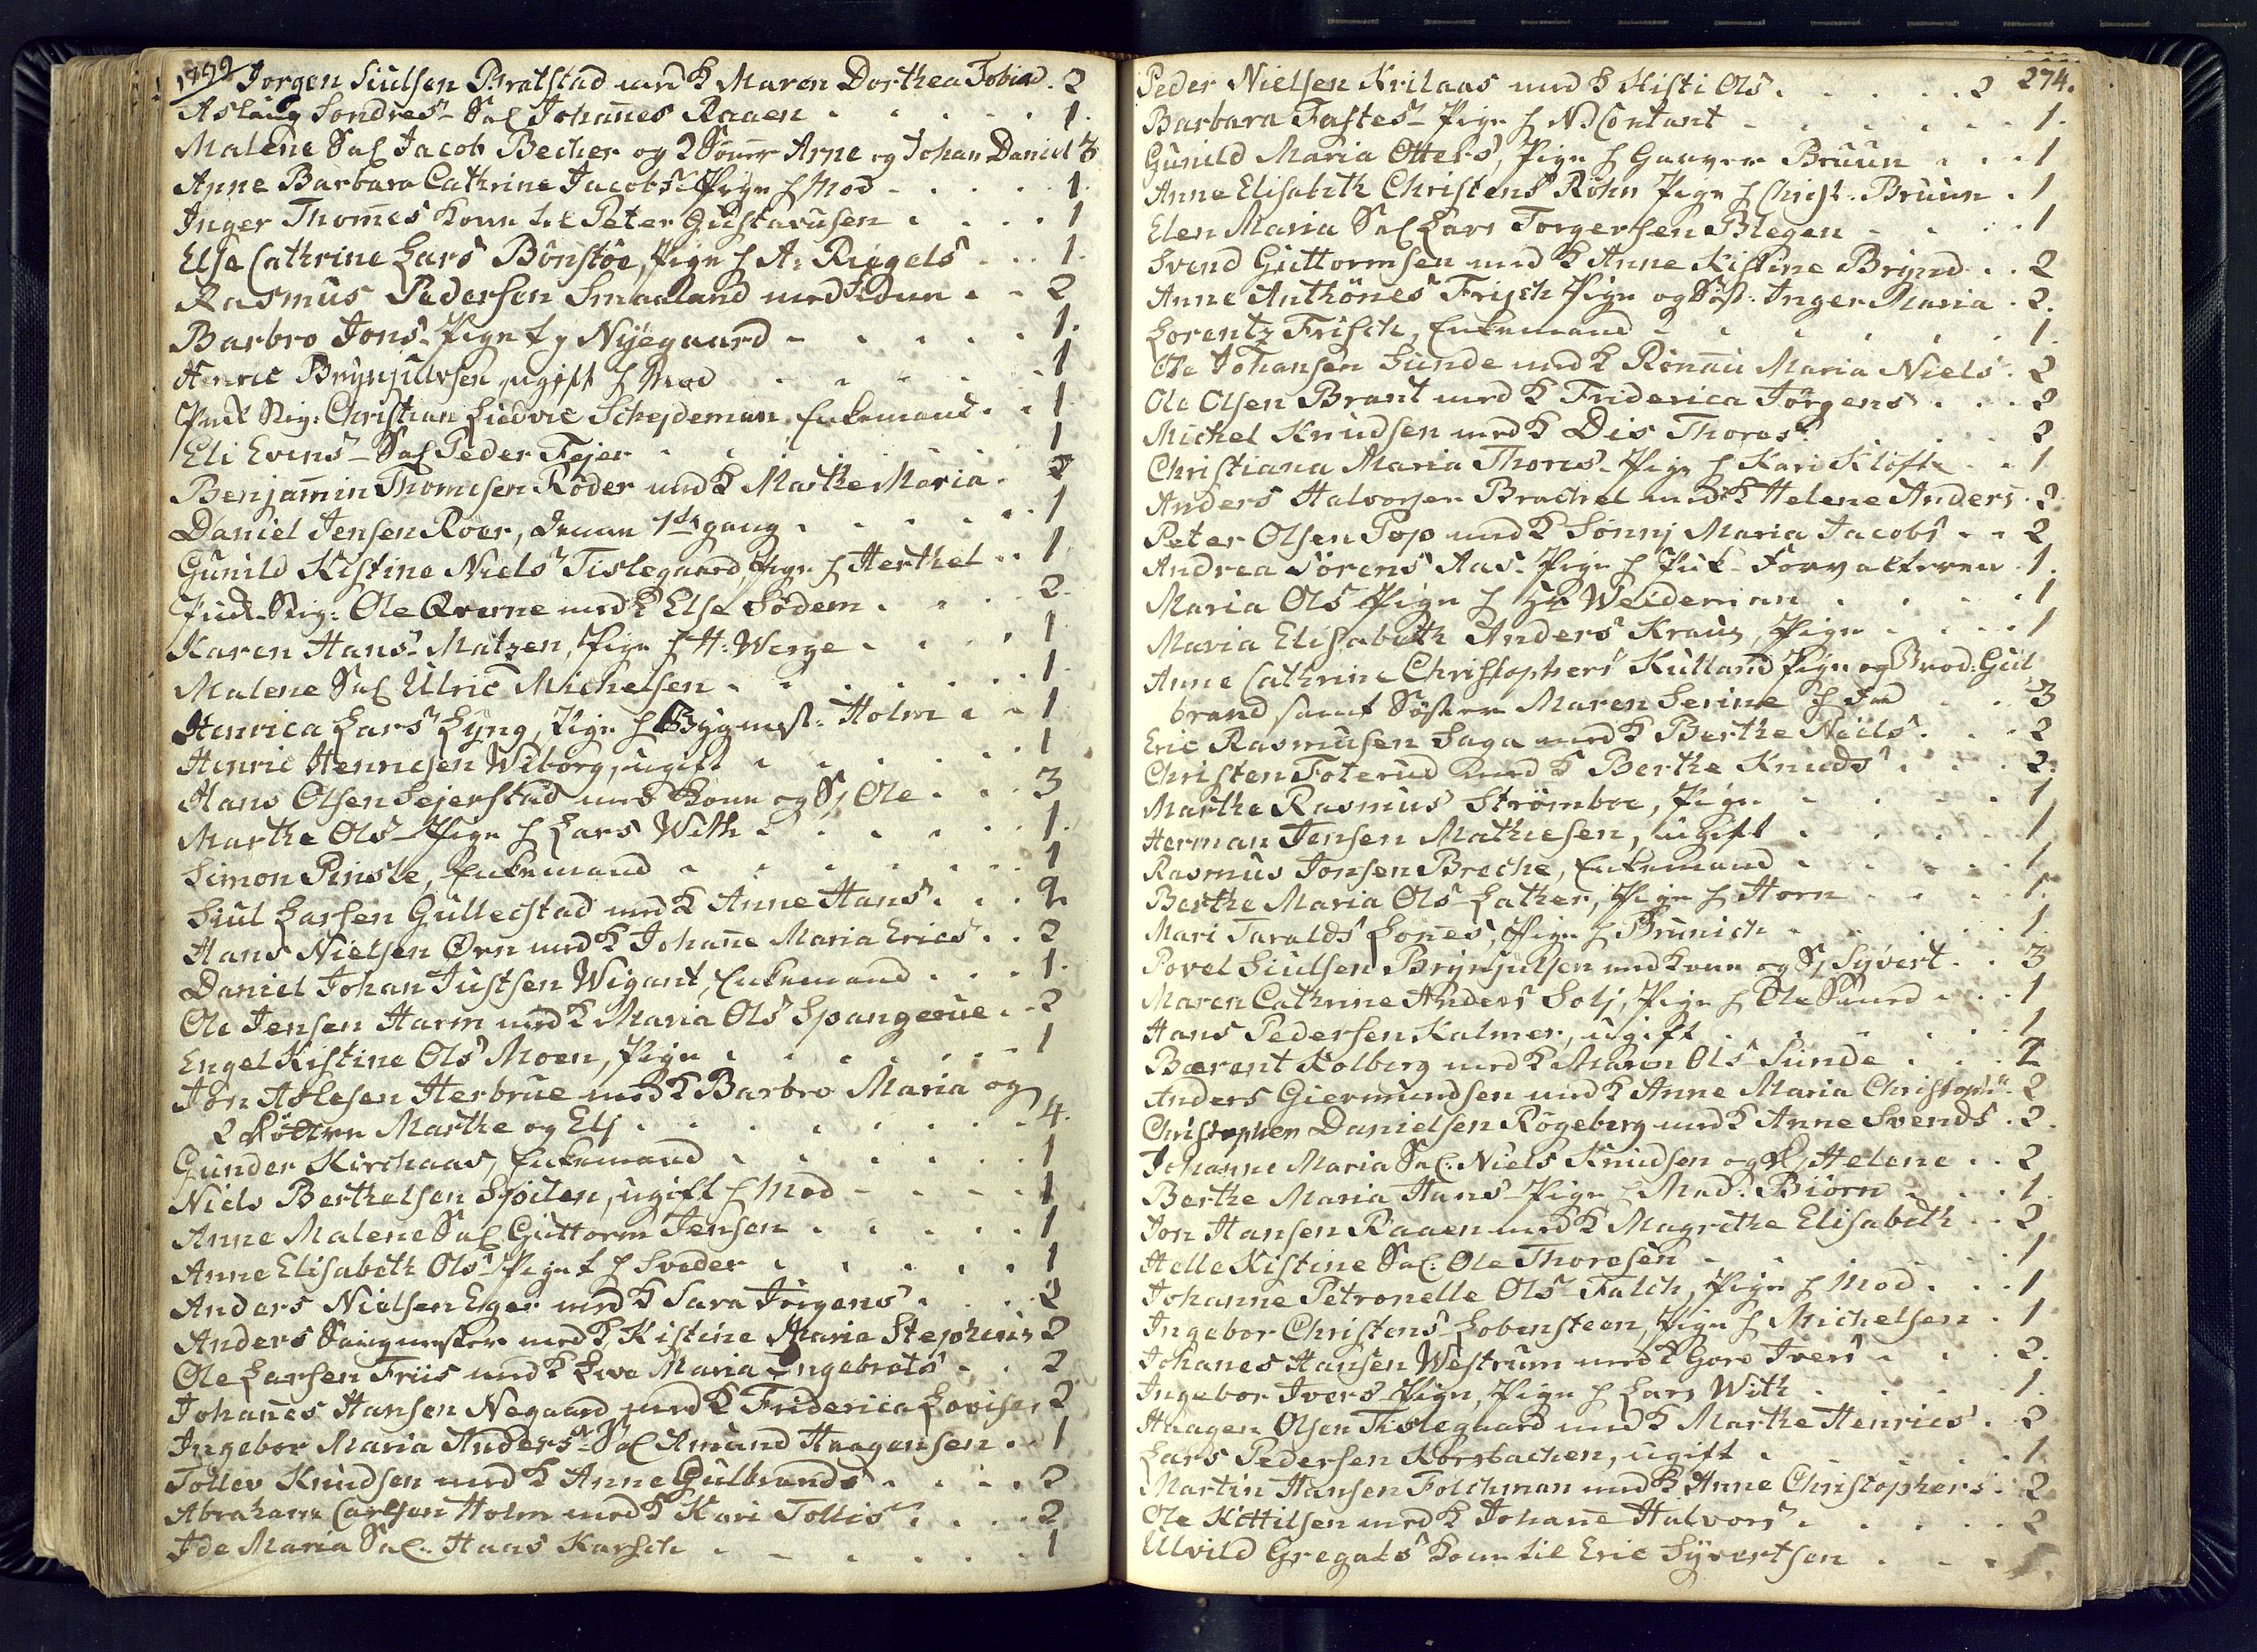 1799 Jorgen Siulsen Bratstad med K Maren Dorthea Tobias . 2
Aslaug Sondres - Sal Johanes Raaen . . . . . 1.
Malene Sal Jacob Becher og 2 Sönner Arne og Johan Daniel 3
Anne Barbara Cathrine Jacobs Pige h Mod . . . . 1.
Inger Thomes Kone til Peter Gustavusen . . . . 1
Else Cathrine Lars Bönstöe, Pige h A: Riegels . . . 1.
Rasmus Pedersen Smaaland med . . 2
Barbro Jons - Pige Nyegaard - . . . . 1.
Henric Brynjulvsen, ugift h Mod . . . . . 1
Christian Ludvic Schejdeman. Enkemand . . 1
Eli Evens - Sal Peder Fejer . . . . . . 1
Benjamin Thomesen Röder med K Marthe Maria . 2
Daniel Jensen Roer, 1ste gang . . . . . 1
Gunild Kistine Niels Tislegaard, Pige h Herthel . . 1
Ole Qverne med K Else Södem . . . 2.
Karen Hans - Matzen, Pige h H: Werge . . . . 1
Malene Sal Ulric Michelsen . . . . . . 1
Henrica Lars Lyng, Pige h Bygmest: Holm . . 1
Henric Hennesen Wiborg, ugift . . . . . 1
Hans Olsen Sejerstad med Kone og S, Ole . . . 3
Marthe Ols - Pige h Lars With . . . . . . 1.
Simon Pinsle, Enkemand . . . . . . 1
Siul Larsen Gullecstad med K Anne Hans . . . 2
Hans Nielsen Örn med K Johane Maria Erics . . 2
Daniel Johan Justsen Wigant, Enkemand . . . 1.
Ole Jensen Harm med K Maria Ols Spangerue . - 2
Engel Kistine Ols Moen, Pige . . . . . . 1
Jon Atlesen Herbrue med K Barbro Maria og
2 Döttre Marthe og Elj . . . . . . . . 4.
Gunder Kirchaas, Enkemand . . . . . . 1
Niels Berthelsen Spiten, ugift h Mod - . . . . 1
Anne Malene Sal Guttorm Jensen . . . . . 1
Anne Elisabeth Ols - Pige h Sveder . . . . . 1
Anders Nielsen Eger med K Sara Jörgens . . . . 2
Anders med K, Kistine Marie Stephens 2
Ole Larsen Friis med K Eva Maria Ingebrets . . . 2
Johanes Hansen Negaard med K Friderica Lovise, 2
Ingebor Maria Anders Sal Amund Haagensen . . 1
Tollev Knudsen med K Anne Gulbrands . . . . 2
Abraham Carlsen Holm med K Kari Tollis . . . . 2
Ide Maria Sal. Haas Karsch . . . . . . 1
Peder Nielsen Krilaas med K Kisti Ols . . . . . 2 274.
Barbara Fastes - Pige h Contant . . . . . . 1.
Gunild Maria Otters, Pige h Bruun . . . 1
Anne Elisabeth Christens Röhn Pige h Christ: Bruun . 1
Elen Maria Sal Lars Torgersen Blegen . . . . 1
Svend Guttormsen med K Anne Kistine Brynd . . 2
Anne Anthönes Frisch Pige og Söst: Inger Maria . 2.
Lorentz Frisch, Enkemand . . . . . . . 1.
Ole Johansen Sunde med K Rönnau Maria Niels . 2
Ole Olsen Brant med K Friderica Jörgens . . . 2
Michel Knudsen med K Dis Thoras . . . . 2
Christiana Maria Thores - Pige h Kari Klöfte . . 1
Anders Halvorsen Brachel med K Helene Anders . 2
Peter Olsen Pop med K Sönnj Maria Jacobs . . 2
Andrea Sörens Aas - Pige h - Forvalteren . 1.
Maria Ols - Pige h Weideman . . . . . 1
Maria Elisabeth Anders Kraus, Pige . . . . 1
Anne Cathrine Christophers Kulland Pige og Brod: Gul
brand samt Söster Maren Serine . . 3
Eric Rasmusen Saga med K Berthe Neils . . . . 2
Christen Foterud med K Berthe Knuds . . . . 2.
Marthe Rasmus Strömboe, Pige . . . . . 1
Herman Jensen Mathiesen, ugift . . . . . 1
Rasmus Jonsen Breche, Enkemand . . . . . 1
Berthe Maria Ols - Lather, Pige h Horn . . . . 1.
Mari Taralds Lones, Pige h Brünich . . . . . 1.
Povel Siulsen Brynjulsen med Kone og S, Syvert . . 3
Maren Cathrine Anders Solj, Pige h Ole . . . 1
Hans Pedersen Kalmer, ugift . . . . . . 1
Bærent Kolberg med K Maren Ols Sunde . . . 2
Anders Giermundsen med K Anne Maria Christoph . 2
Christopher Danielsen Rögeberg med K Anne Svends . 2.
Johanne Maria Sal. Niels Knudsen og D, Helene . . 2
Berthe Maria Hans - Pige h Mad. Biörn . . . . 1.
Jon Hansen Raaen med K Magrethe Elisabeth . . 2
Helle Kistine Sal: Ole Thoresen . . . . . . 1
Johanne Petronelle Ols - Falch, Pige h Mod . . . 1
Ingebor Christens - Lobensteen, Pige h Michelsen . 1
Johanes Hansen Westrum med K Goro Ivers . . . 2.
Ingebor Ivers Pige, Pige h Lars With . . . . 1.
Haagen Olsen Tislegaard med K Marthe Henrics . 2
Lars Pedersen Korsbachen, ugift . . . . . 1
Martin Hansen Folchman med K Anne Christophers . 2
Ole Kittilsen med K Johane Halvors . . . . . 2
Ulvild Gregats Kone til Eric Syvertsen . . . 1.